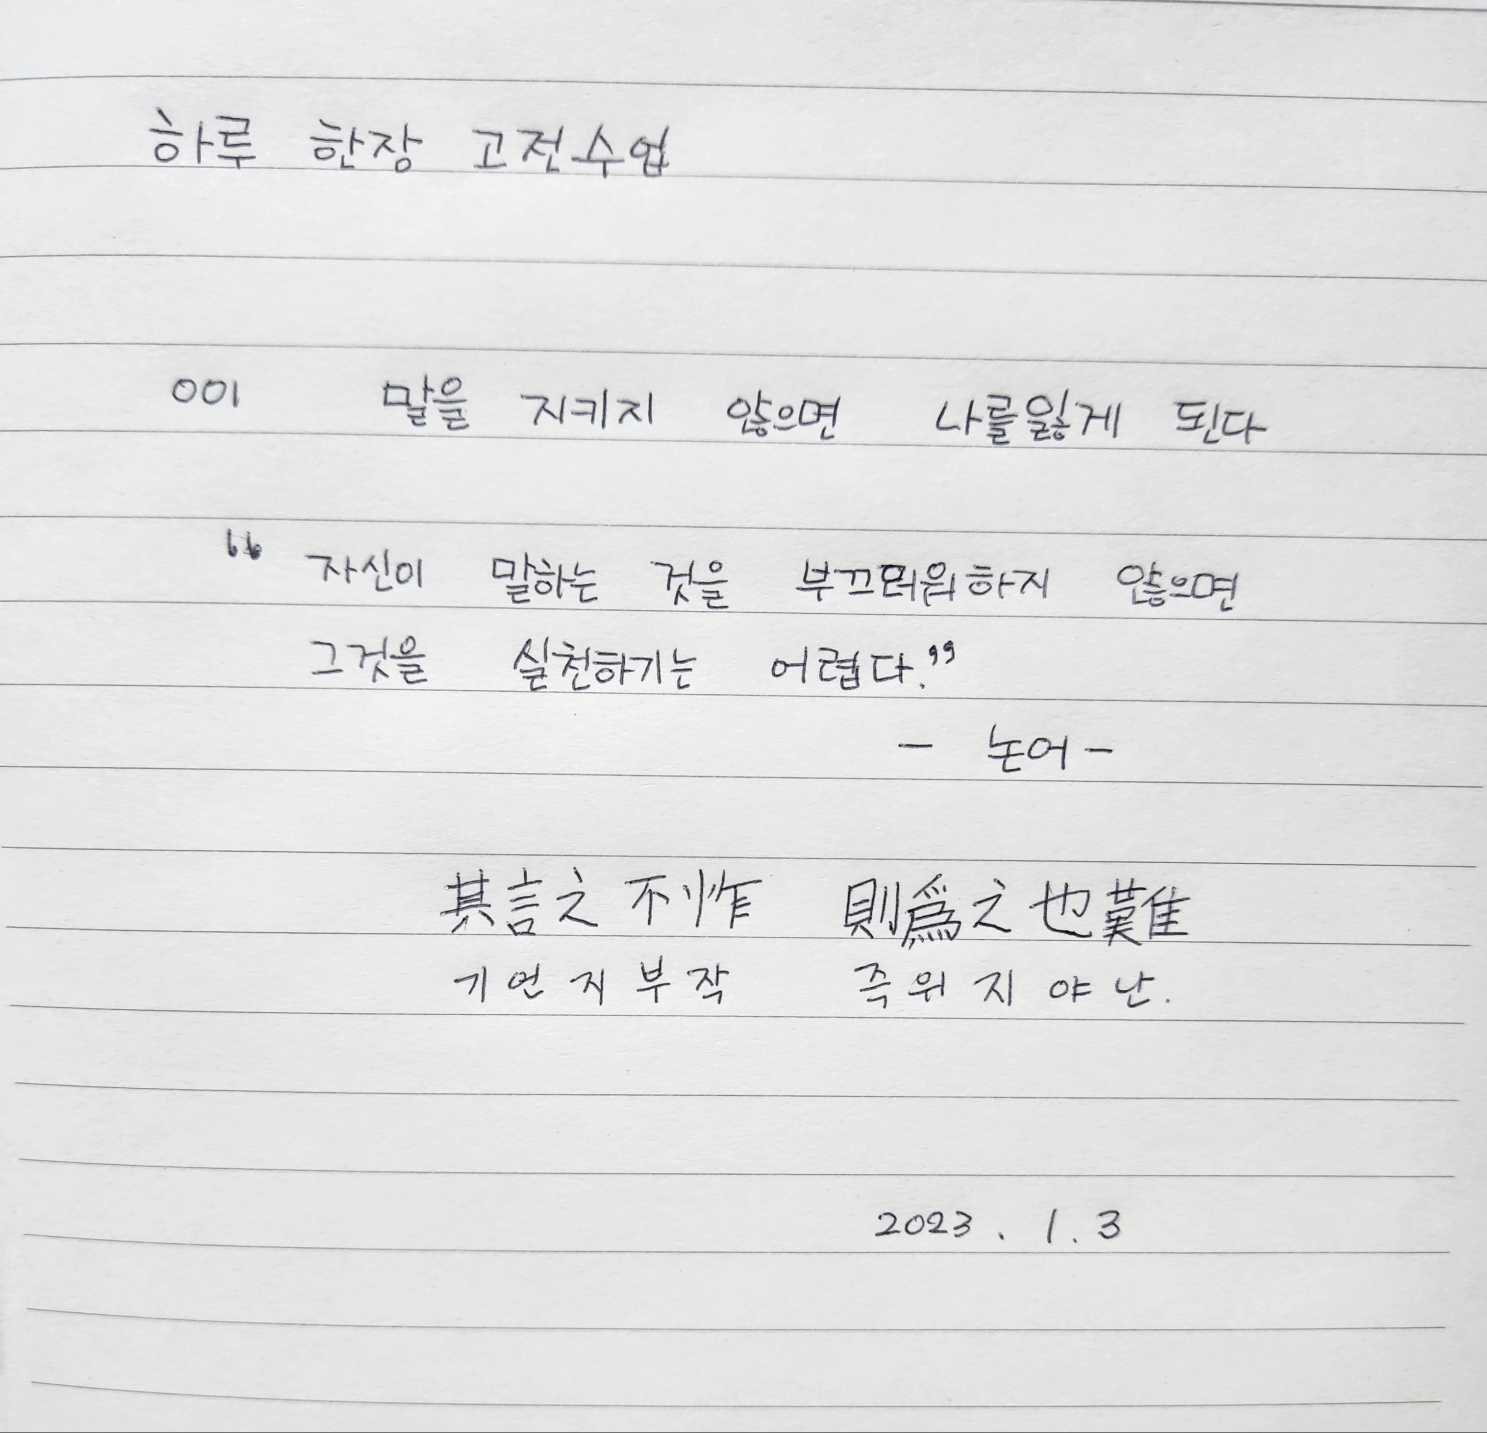 하루 한장 고전수업
001 말을 지키지 않으면 나를잃게 된다
“ 자신이 말하는 것을 부끄러워하지 않으면
그것을 실천하기는 어렵다.”
- 논어 -
其言之不怍 則爲之也難
기언지부작 즉위지야난.
2023. 1. 3